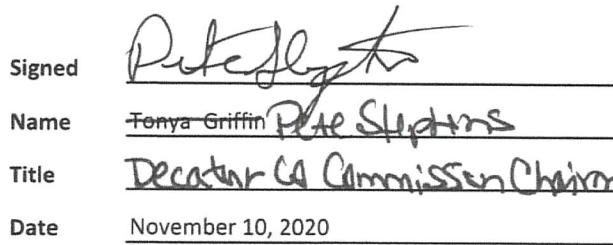 Signed Pete Stephens
Name Tonya Griffin Pete Stephens
Title Decatur Co Commisson Chairm
Date November 10, 2020